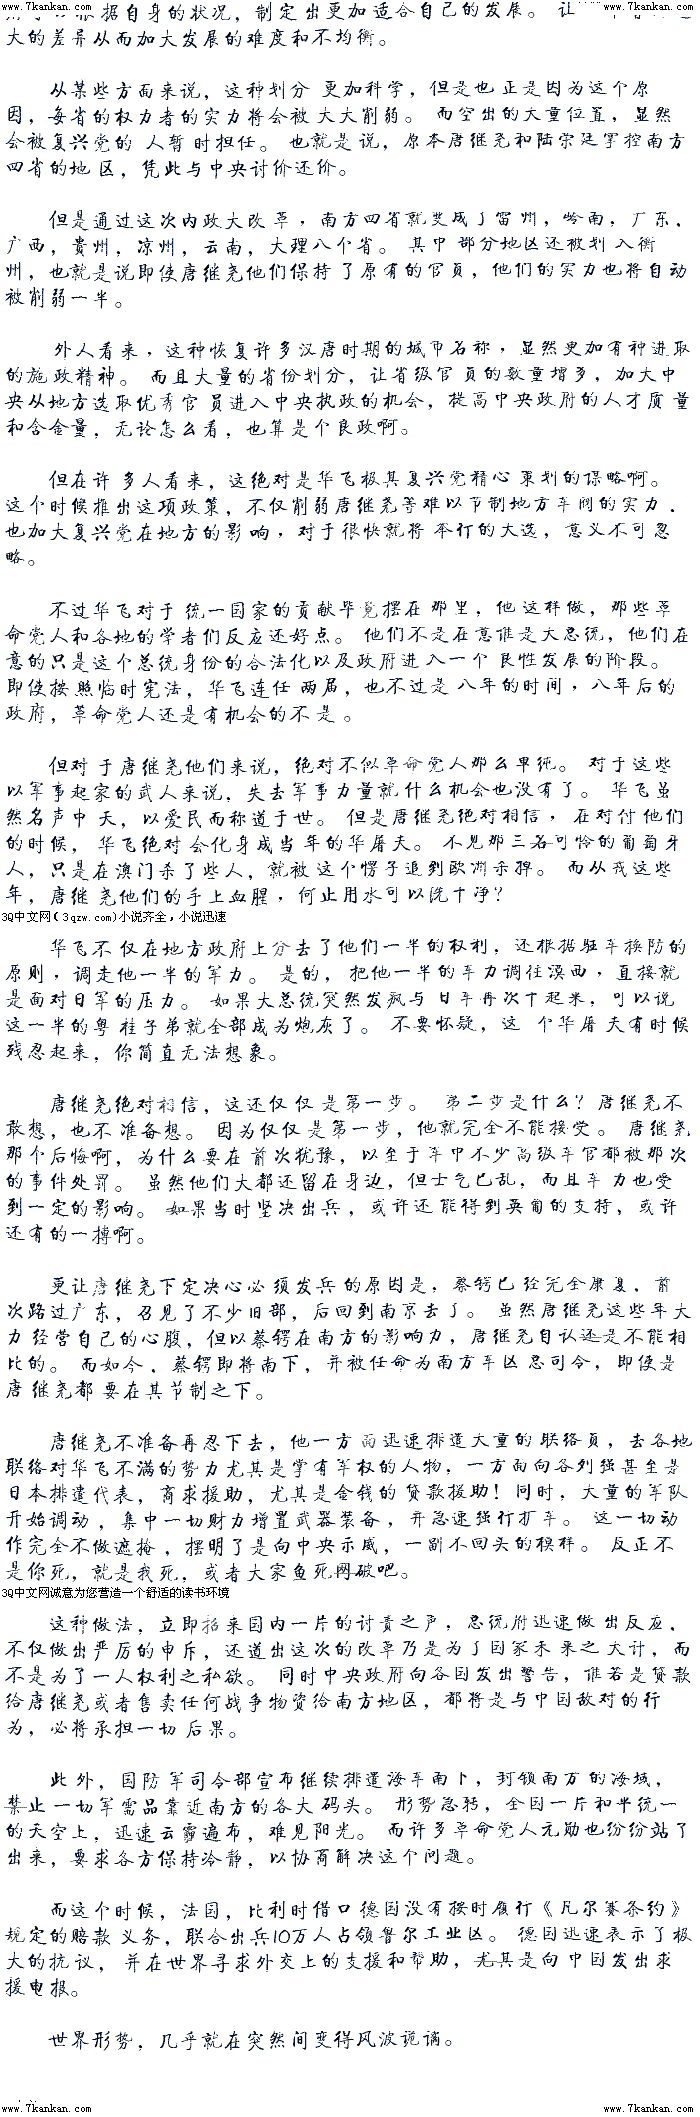 www.7kankan.com www.7kankan.com
根据自身的状况，制定出更加适合自己的发展。 让
大的差异从而加大发展的难度和不均衡。
从某些方面来说，这种划分 更加科学，但是也 正是因为这个原
因，每省的权力者的实力将会被 大大削弱。 而空出的大量位置，显然
会被复兴党的 人暂时担任。 也就是 说，原本唐继尧和陆荣廷掌控南方
四省的地 区，凭此与中央讨价还价。
但是通过这次内政大改革，南方四省就变成了雷州，岭南，广东，
广西，贵州，凉州，云南，大理八个省。 其中 部分地区还被划 入衡
州，也就是说即使唐继尧他们保持 了原有的官员，他们的实力也将自动
被削弱一半。
外人看来，这种恢复许多汉唐时期的城市名称，显然更加有神进取
的施政精神。 而且大量的省份划分，让省级官 员的数量增多，加大中
央从地方选取优秀官 员进入中央执政的机会，提高中央政府的人才质 量
和含金量，无论怎么看，也算是个良政啊。
但在许 多人看来，这绝对是华飞极其复兴党精心 策划的谋略啊。
这个时候推出这项政策，不仅削弱唐继尧等难以节制地方军阀的实力．
也加大复兴党在地方的影响，对于很快就将 举行的大选，意义不可忽
略。
不过华飞对于 统一国家的贡献毕竟摆在 那里，他 这样做，那些革
命党人和各地的学者们反应还好点。 他们不是在意谁是大总统，他们在
意的只是这个总统身份的合法化以及政府进 入一个 良性发展的阶段。
即使按 照临时宪法，华飞连任 两届，也不过是 八年的时间，八年后的
政府，革命党人还是有机会的不 是。
但对 于唐继尧他们来说，绝对不似革命党人那么单纯。 对于这些
以军事起家的武人来说，失去军事力量就 什么机会也没有了。 华飞虽
然名声中 天，以爱民而称道于世。 但是唐继尧绝对相信，在对付他们
的时候，华飞绝对 会化身成当 年的华屠夫。 不见那三名可怜的葡萄牙
人，只是在澳门杀了些人，就被 这个愣子追到欧洲杀掉。 而从戎这些
年，唐继 尧他们的手上血腥，何止用水可以洗干净？
3Q中文网(3qzw.com)小说齐全，小说迅速
华飞不 仅在地方政府上分去了他们一半的权利，还根据驻军换防的
原则，调走他一半的军力。 是的， 把他一半的军力调往滇西，直接就
是面对日军的压力。 如果大总统突然发疯与 日军再次干起来，可以说
这一半的粤 桂子弟就全部成为炮灰了。 不要怀疑，这 个华屠 夫有时候
残忍起来，你简直无法想象。
唐继尧绝对相信，这还仅仅 是第一步。 第二步是什么？唐继尧不
敢想，也不 准备想。 因为仅仅是第一步，他就完全不能接受。 唐继尧
那个后悔啊，为什么要在前次犹豫，以至于军中不少高级军官都被那次
的事件处罚。 虽然他们大都还留在身边，但士气已乱，而且军 力也受
到一定的影响。 如果当时坚决出兵，或许还能得到英葡的支持，或许
还有的一搏啊。
更让唐继尧下定决心必 须发兵 的原因是，蔡锷已 经完全康复，前
次路过广东，召见了不少旧部，后回到南京去了。 虽然唐继尧这些年大
力 经营自己的心腹，但以蔡锷在南方的影响力，唐继尧自认还是不能相
比的。 而如今，蔡锷即将南下，并被任命为南方军区总司令，即使是
唐 继尧都 要在其节制之下。
唐继尧不准备再忍下去，他一方面迅速排遣大量的联络员，去各地
联络对华飞不满的势力尤其是掌有军权的人物，一方面向各列强甚至是
日本排遣代表，商求援助，尤其是金钱的贷款援助！同时，大量的军队
开始调动，集中一切财力增置武器装备，并急速强行扩军。 这一切动
作完全不做遮掩，摆明了是向中央示威，一副不回头的模样。 反正不
是你死，就是我死，或者大家鱼死网破吧。
3Q中文网诚意为您营造一个舒适的读书环境
这种做法，立即招来国内一片的讨责之声，总统府迅速做 出反应．
不仅做出严厉的申斥，还道出这次的改革乃是为了国家未 来之 大计，而
不是为了一人权利之私欲。 同时中央政府向各国发出警告，谁若是贷款
给唐继尧或者售卖任何战争物资给南方地区，都将是与中国敌对的行
为，必将承担一切 后果。
此外，国防 军司令部宣布继续排遣海军南下，封锁南方 的海域，
禁止 一切军需品靠近南方的各大 码头。 形势急转，全国一片和平统一
的天空上，迅速云雾遍布，难见阳光。 而许多革命党人元勋也纷纷站了
出来，要求各方保持冷静，以协商解决这个问题。
而这个时候，法国，比利时借口德国没有按时履行《凡尔赛条约》
规定的赔款 义务，联合出兵10万人占领鲁尔工业区。 德国迅速表示了极
大的抗议， 并在世界寻求外交上的支援和帮助，尤其是向 中国发出求
援电报。
世界形势，几乎就在突然间变得风波诡谲。
www.7kankan.com www.7kankan.com